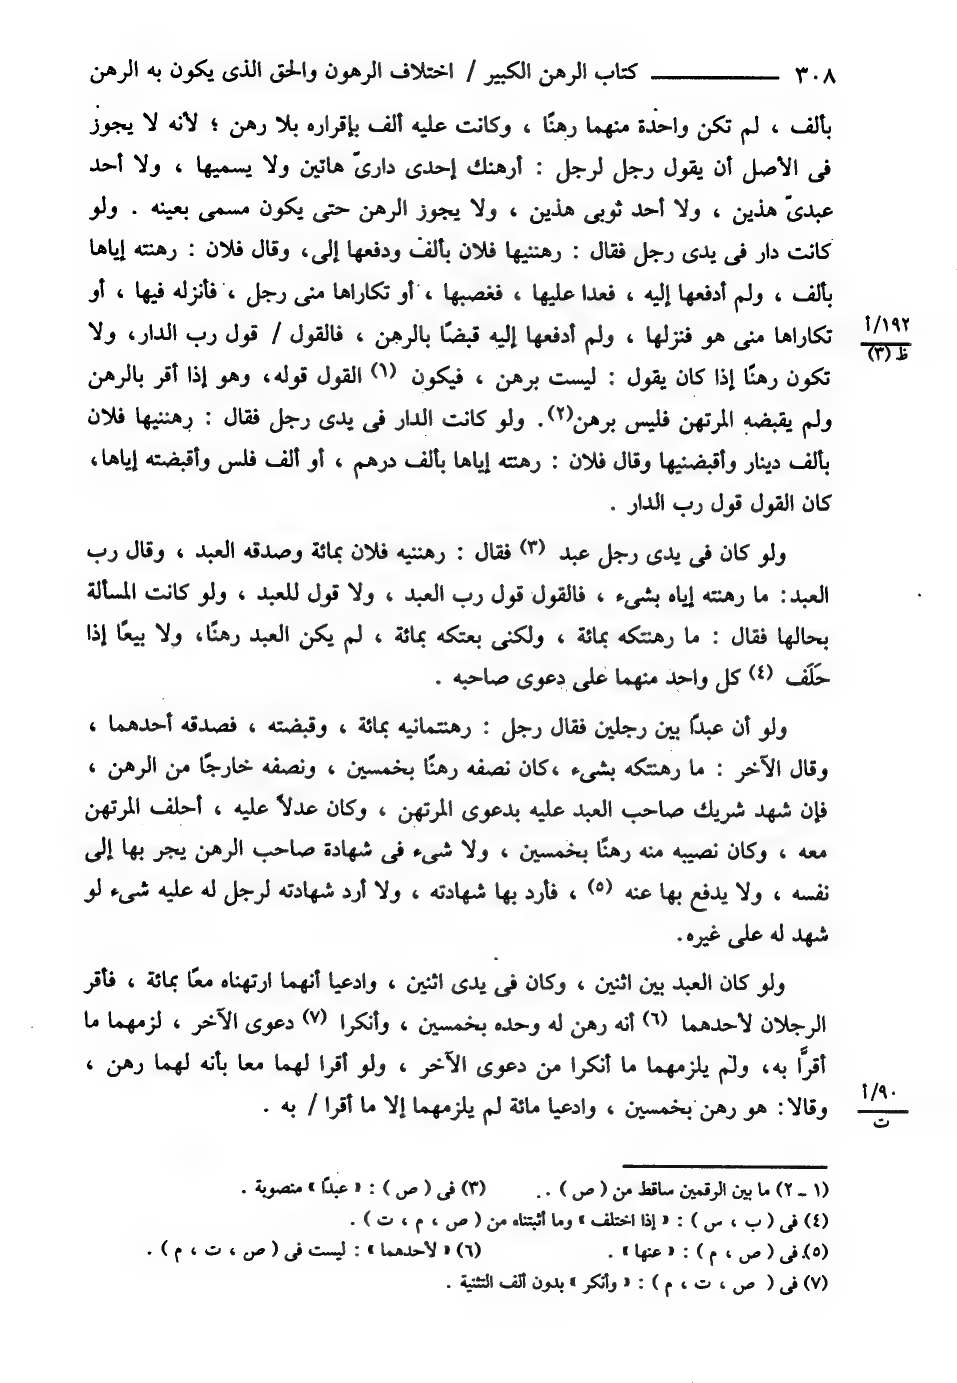 ٣٠٨ ــــــــــ كتاب الرهن الكبير / اختلاف الرهون والحق الذى يكون به الرهن
بألف ، لم تكن واحدة منهما رهنًا ، وكانت عليه ألف بإقراره بلا رهن ؛ لأنه لا يجوز
فى الأصل أن يقول رجل لرجل : أرهنك إحدى دارىّ هاتين ولا يسميها ، ولا أحد
عبدىّ هذين ، ولا أحد ثوبى هذين ، ولا يجوز الرهن حتى يكون مسمى بعينه . ولو
كانت دار فى يدى رجل فقال : رهننيها فلان بألف ودفعها إلى، وقال فلان : رهنته إياها
بألف ، ولم أدفعها إليه ، فعدا عليها ، فغصبها ، أو تكاراها منى رجل ، فأنزله فيها ، أو
تكاراها منى هو فنزلها ، ولم أدفعها إليه قبضًا بالرهن ، فالقول / قول رب الدار، ولا
١٩٢/أ
ظ (٣)
تكون رهنًا إذا كان يقول : ليست برهن ، فيكون (١) القول قوله، وهو إذا أقر بالرهن
ولم يقبضه المرتهن فليس برهن(٢). ولو كانت الدار فى يدى رجل فقال : رهننيها فلان
بألف دينار وأقبضنيها وقال فلان : رهنته إياها بألف درهم ، أو ألف فلس وأقبضته إياها،
كان القول قول رب الدار .
ولو كان فى يدى رجل عبد (٣) فقال : رهننيه فلان بمائة وصدقه العبد ، وقال رب
العبد: ما رهنته إياه بشىء ، فالقول قول رب العبد ، ولا قول للعبد ، ولو كانت المسألة
بحالها فقال : ما رهنتكه بمائة ، ولكنى بعتكه بمائة ، لم يكن العبد رهنًا، ولا بيعًا إذا
حَلَف (٤) كل واحد منهما على دعوى صاحبه .
ولو أن عبدًا بين رجلين فقال رجل : رهنتمانيه بمائة ، وقبضته ، فصدقه أحدهما ،
وقال الآخر : ما رهنتكه بشىء ،كان نصفه رهنًا بخمسين ، ونصفه خارجًا من الرهن ،
فإن شهد شريك صاحب العبد عليه بدعوى المرتهن ، وكان عدلاً عليه ، أحلف المرتهن
معه ، وكان نصيبه منه رهنًا بخمسين ، ولا شىء فى شهادة صاحب الرهن يجر بها إلى
نفسه ، ولا يدفع بها عنه (٥) ، فأرد بها شهادته ، ولا أرد شهادته لرجل له عليه شىء لو
شهد له على غيره.
ولو كان العبد بين اثنين ، وكان فى يدى اثنين ، وادعيا أنهما ارتهناه معًا بمائة ، فأقر
الرجلان لأحدهما (٦) أنه رهن له وحده بخمسين ، وأنكرا (٧) دعوى الآخر ، لزمهما ما
أقرَّا به، ولم يلزمهما ما أنكرا من دعوى الآخر ، ولو أقرا لهما معا بأنه لهما رهن ،
وقالا: هو رهن بخمسين ، وادعيا مائة لم يلزمهما إلا ما أقرا / به .
٩٠/أ
ت
(١ ــ ٢) ما بين الرقمين ساقط من ( ص ) . (٣) فى ( ص ) : « عبدًا » منصوبة .
(٤) فى ( ب ، س ) : « إذا اختلف » وما أثبتناه من ( ص ، م ، ت ) .
(٥) فى ( ص ، م ) : « عنها » . (٦) « لأحدهما » : ليست فى ( ص ، ت ، م ) .
(٧) فى ( ص ، ت ، م ) : « وأنكر » بدون ألف التثنية .